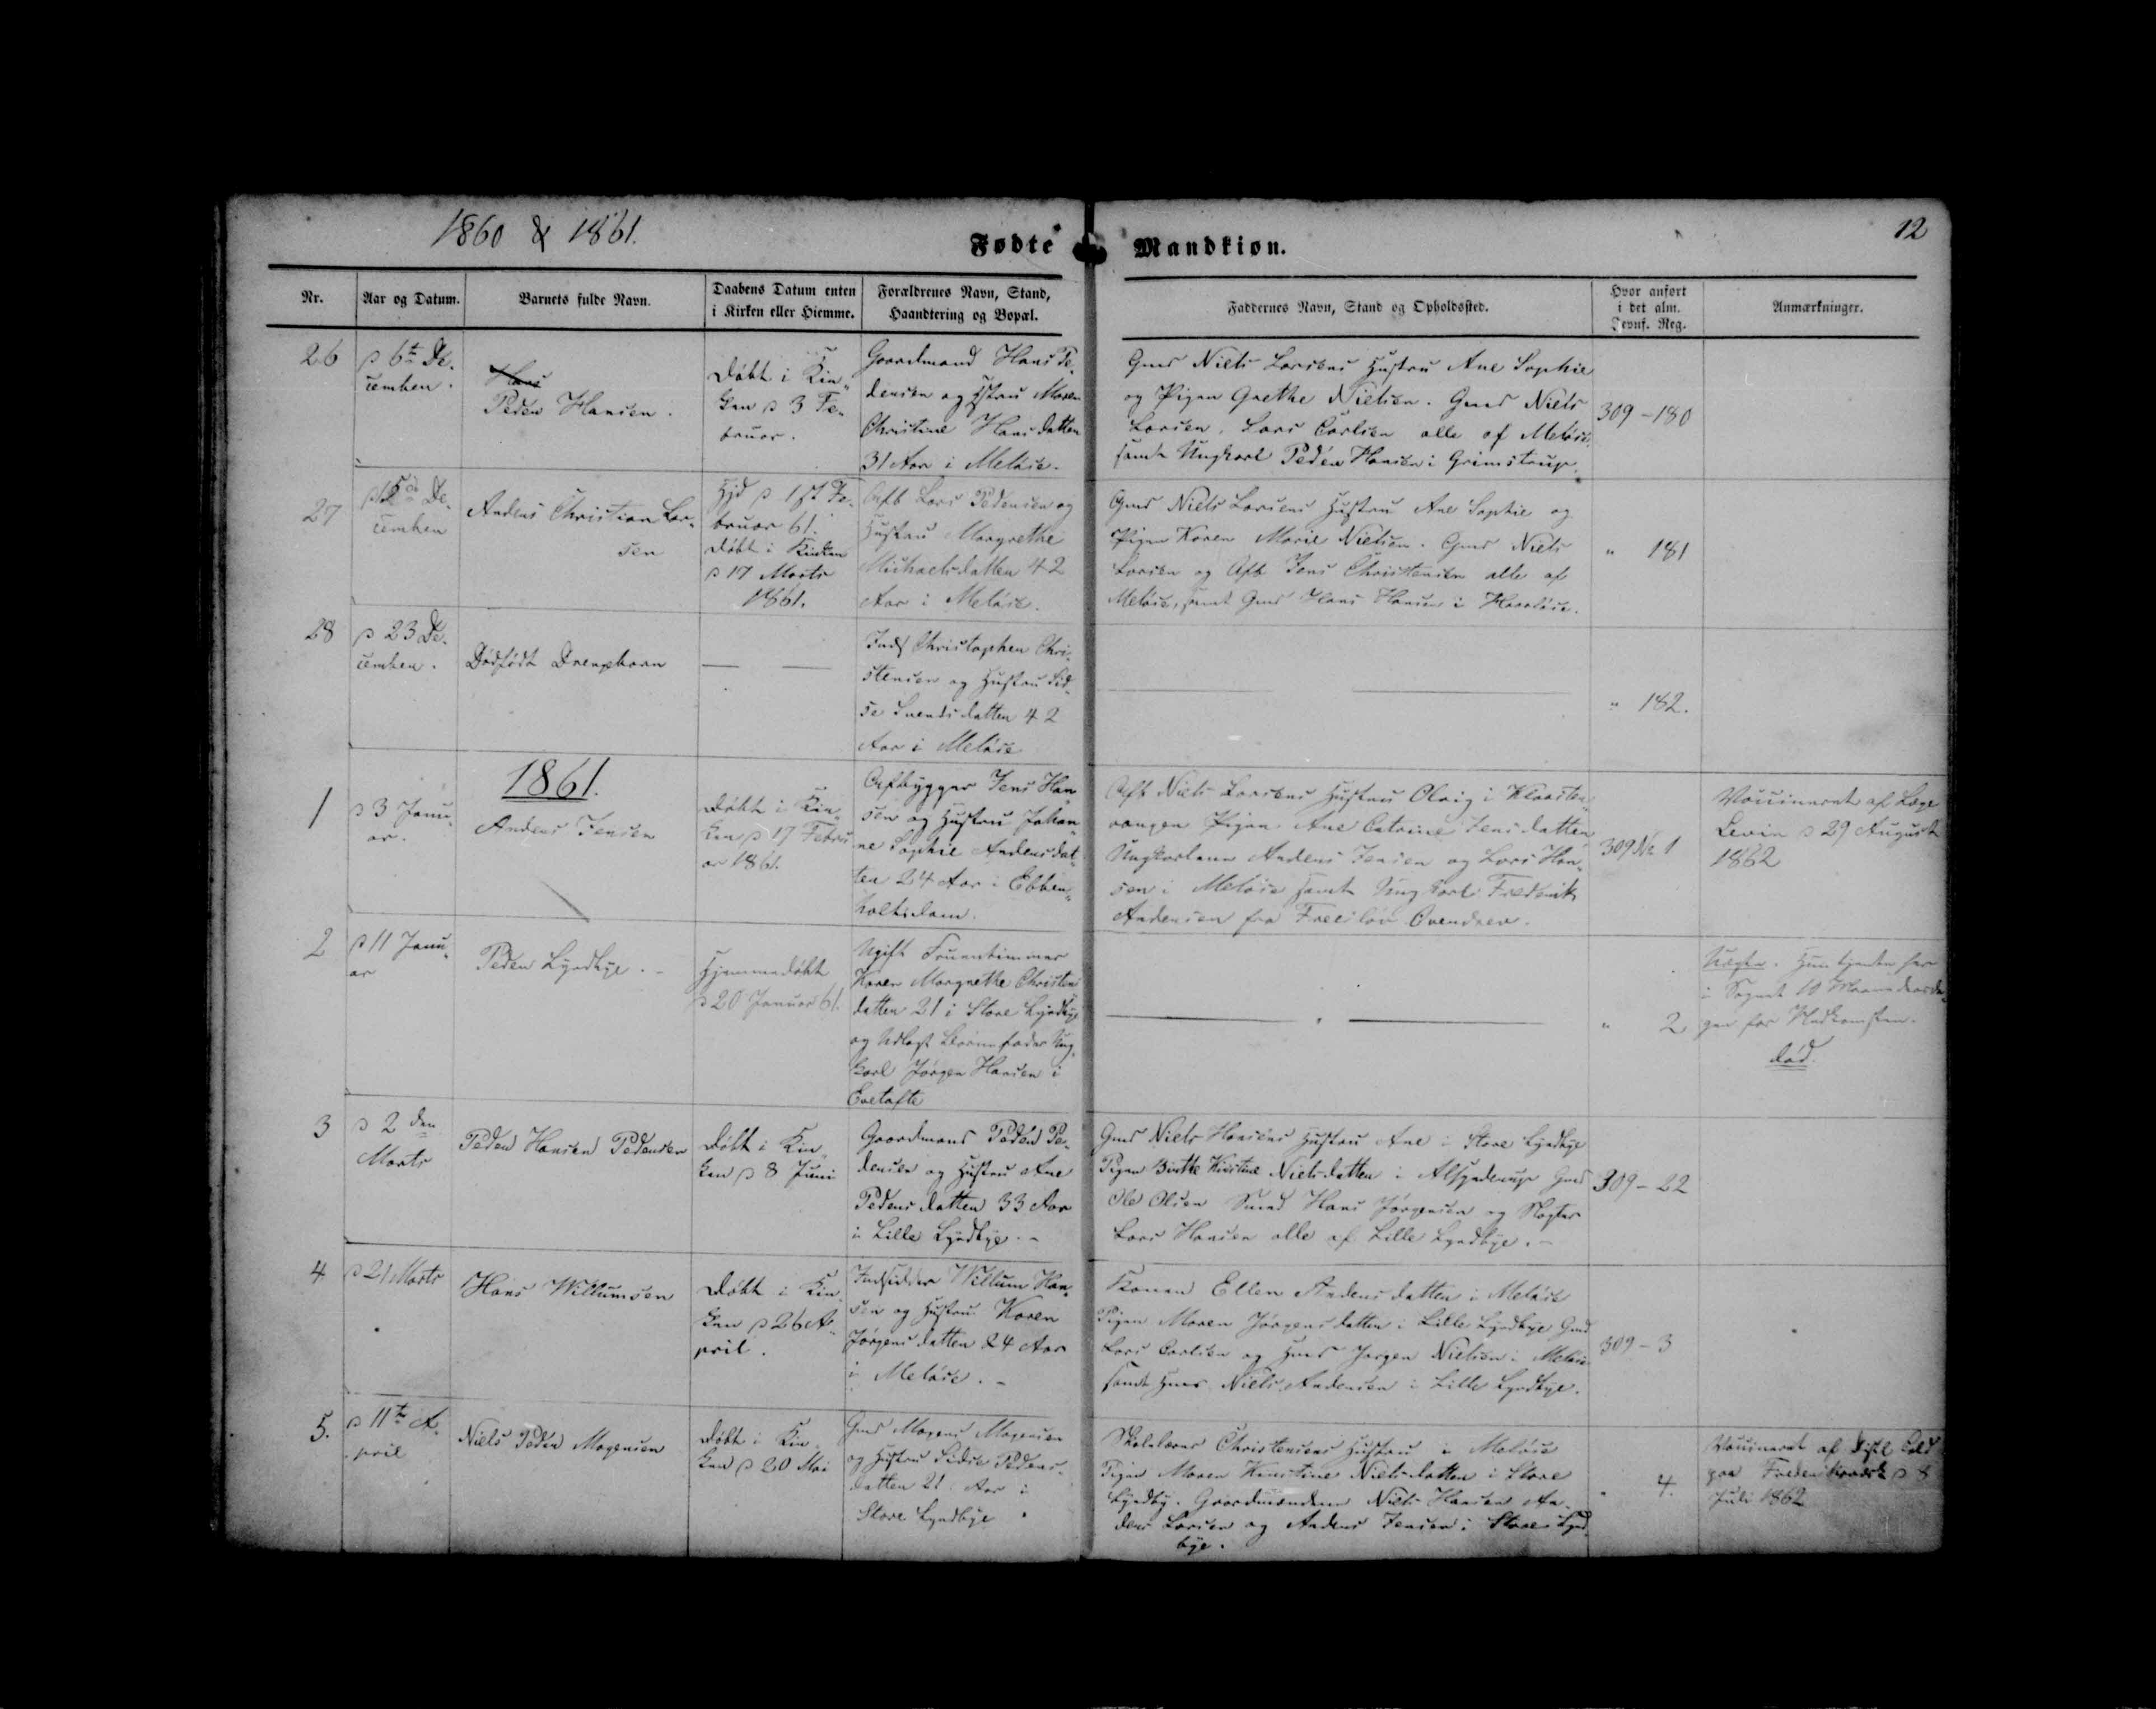 1860 & 1861.
12
Fødte Mandkiøn.
Nr.
Aar og Datum.
Barnets fulde Navn.
Daabens Datum enten
i Kirken eller Hiemme.
Forældrenes Navn, Stand,
Haandtering og Bopæl.
Faddernes Navn, Stand og Opholdssted.
Hvor anført
i det alm.
Jevnf. Reg.
Anmærkninger.
26
d 6te De-
cember.
Hans
Peder Hansen.
Døbt i Kir-
ken d 3 Fe-
bruar.
Gaardmand Hans Pe-
dersen og Hstru Maren
Christine Hansdatter
31 Aar i Meløse.
Gmd Niels Larsens Hustru Ane Sophie
og Pigen Grethe Nielsen. Gmd Niels
Larsen, Lars Carlsen alle af Meløse,
samt Ungkarl Peder Hansen i Grimstrup.
309-180
27
De-
cember
Anders Christian Lar-
sen
Hjd d 1st Fe-
bruar 61.
Døbt i Kirken
d 17 Marts
1861.
Aftb Lars Pedersen og
Hustru Margrethe
Michaelsdatter 42
Aar i Meløse.
Gmd Niels Larsens Hustru Ane Sophie og
Pigen Karen Marie Nielsen. Gmd Niels
Larsen og Aftb Jens Christensen alle af
Meløse, samt Gmd Hans Hansen i Harløse.
" 181
28
d 23 De-
cember.
Dødfødt Drengebarn
Inds Christopher Chri-
stensen og Hustru Sid-
se Svendsdatter 42
Aar i Meløse
" 182.
1861.
1
d 3 Janu-
ar.
Anders Jensen
Døbt i Kir-
ken d 17 Febru
ar 1861.
Aftbygger Jens Han-
sen og Hustru Johan-
ne Sophie Andersdat-
ter 24 Aar i Ebbe-
holtsdam.
Aftb Niels Larsens Hustru i Kloster-
vangen Pigen Ane Catrine Jensdatter
Ungkarlene Anders Jensen og Lars Han-
sen i Meløse samt Ungkarl Frederik
Andersen fra Freesløv
309 No 1
Vaccineret af Læge
Levin d 29 August
1862
2
d 11 Janu-
ar
Peder Lyndbye.
Hjemmedøbt
d 20 Januar 61.
Ugift Fruentimmer
Karen Margrethe Christens
datter 21 i Store Lyndbye
og Udlagt Barnefader Ung-
karl Jørgen Hansen i
Evetofte
" 2
Uægte. Hun tjente her
i Sognet 10 Maanedersda-
gen før Nedkomsten.
død.
3
d 2 den
Marts
Peder Hansen Pedersen
Døbt i Kir-
ken d 8 Juni
Gaardmand Peder Pe-
dersen og Hustru Ane
Pedersdatter 33 Aar
i Lille Lyndbye.
Gmd Niels Hansens Hustru Ane i Store Lyndbye
Pigen Birthe Kirstine Nielsdatter i Alsynderup Gmd
Ole Olsen Smed Hans Jørgensen og
Lars Hansen alle af Lille Lyndbye.
309-22
4
d 21 Marts
Hans Willumsen
Døbt i Kir-
ken d 26 A-
pril.
Indsidder Willum Han-
sen og Hustru Karen
Jørgensdatter 24 Aar
i Meløse.
Konen Ellen Andersdatter i Meløse
Pigen Maren Jørgensdatter i Lille Lyndbye Gmd
Lars Carlsen og Hmd Jørgen Nielsen i Meløse
samt Hmd Niels Andersen i Lille Lyndbye.
309-3
5.
d 11te A-
pril
Niels Peder Mogensen
Døbt i Kir-
ken d 20 Mai
Gmd Mogens Mogensen
og Hustru Sidse Peders-
datter 21 Aar i
Store Lyndbye
Skolelærer Christensens Hustru i Meløse
Pigen Maren Kirstine Nielsdatter i Store
Lyndby. Gaardmændene Niels Hansen An-
ders Larsen og Anders Jensen i Store Lynd-
bye.
" 4.
Vaccineret af Distl
paa Frederiksværk d 8
Juli 1862